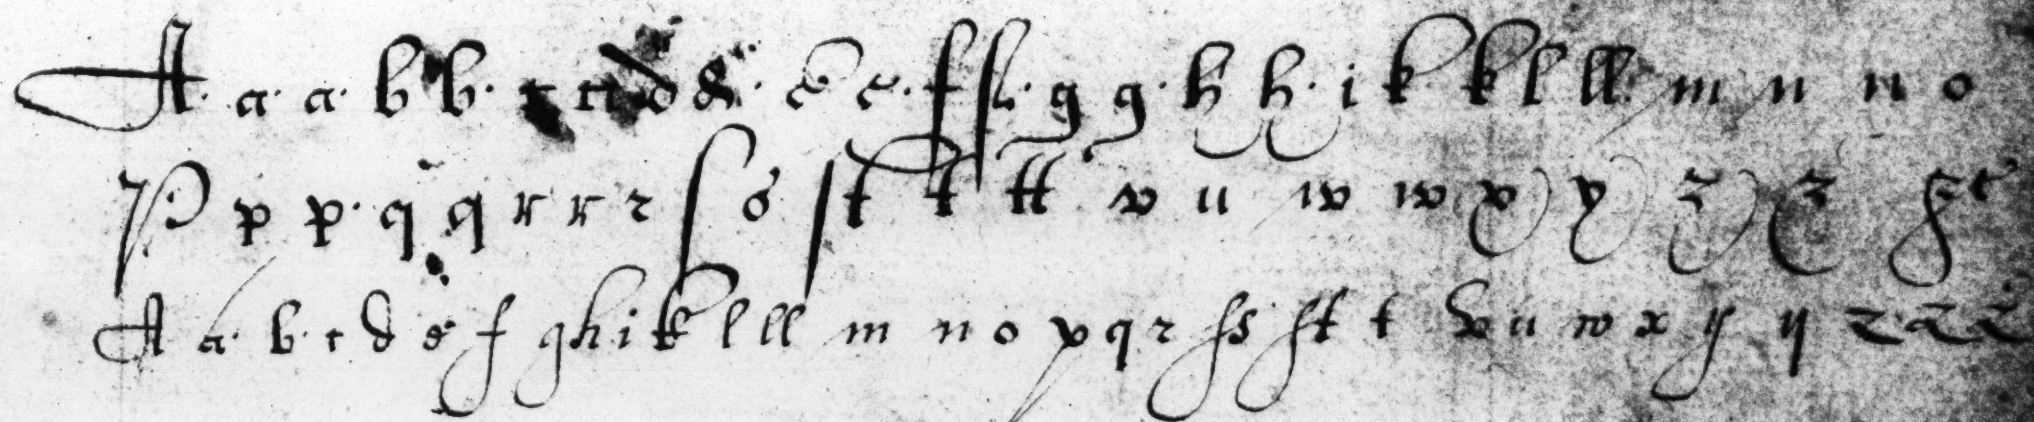 A. a. a. b b. c c d d. e e. f ff. g g. h h. i k k l ll m n n o
p p p. q q r r r ſ s ſt t tt v u w w x y z z &c
A a. b. c d e f g h i k l ll m n o p q r ſs ſt t v u w x y y z z z